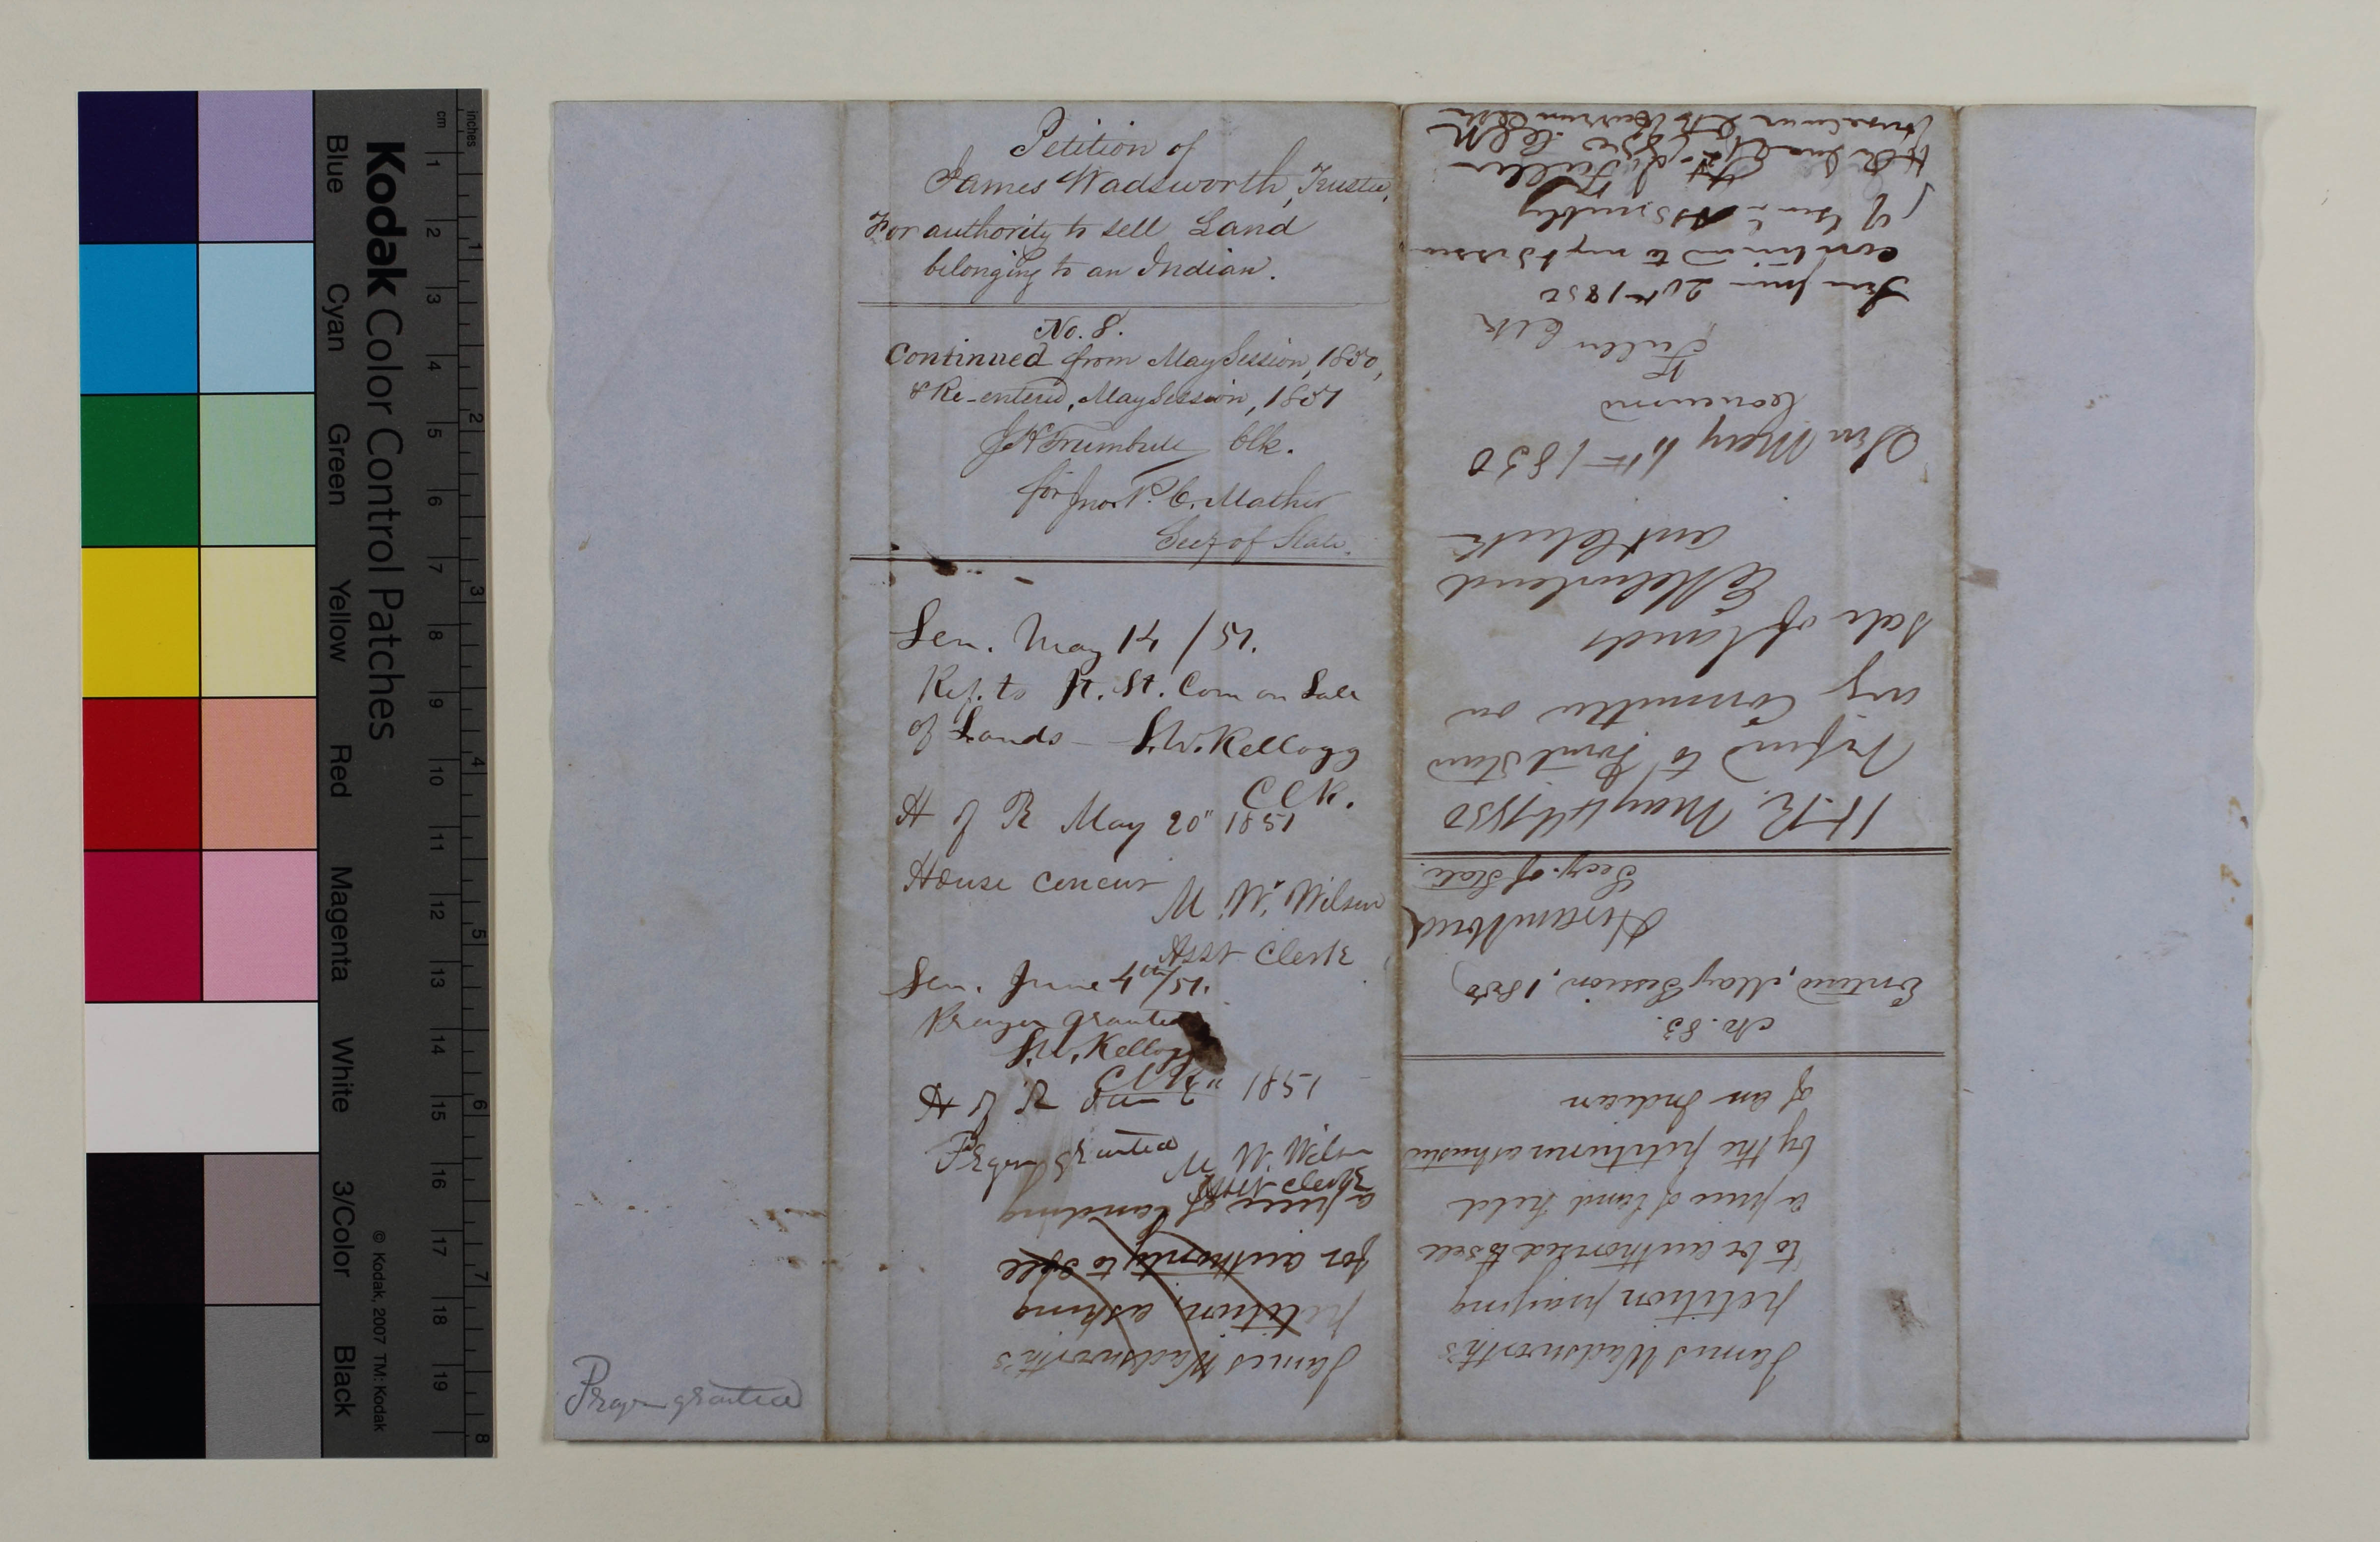 Kodak Color Control Patches
Blue Cyan Green Yellow Red Magenta White 3/Color Black
© Kodak, 2007 TM: Kodak
inches
1 2 3 4 5 6 7 8
cm
1 2 3 4 5 6 7 8 9 10 11 12 13 14 15 16 17 18 19
Prayer granted
Petition of
James Wadsworth, Trustee,
For authority to sell Land
belonging to an Indian.
No. 8.
Continued from May Session, 1850,
& Re-entered, May Session, 1851
J H Trumbull Clk.
for Jno. P. C. Mather
Secy of State.
Sen. May 14 / 51.
Ref. to Jt. St. Com on Sale
of Lands — S. W. Kellogg
Clk.
H of R May 20" 1851
House concur
M. W. Wilson
Asst Clerk
Sen. June 4th/51.
Prayer granted
S. W. Kellogg
Clk
H of R June 1851
Prayer Granted
M W. Wilson
Asst Clerk
James Wadsworth's
petition, asking
for authority to sell
a piece of land
James Wadsworth's
petition praying
to be authorized to sell
a piece of land held
by the petitioner as trustee
of an Indian
No. 83.
Entered, May Session, 1850,
Secy. of State.
H.R. May 1850
referd to Joint Stand
ing Committee on
sale of lands
C
ast Clerk
Sen May 1850
Concurred
Fuller Clk
Sen June 20th 1850
continued to next session
of Genl. Assembly
Fuller
Clk
H R June 1850